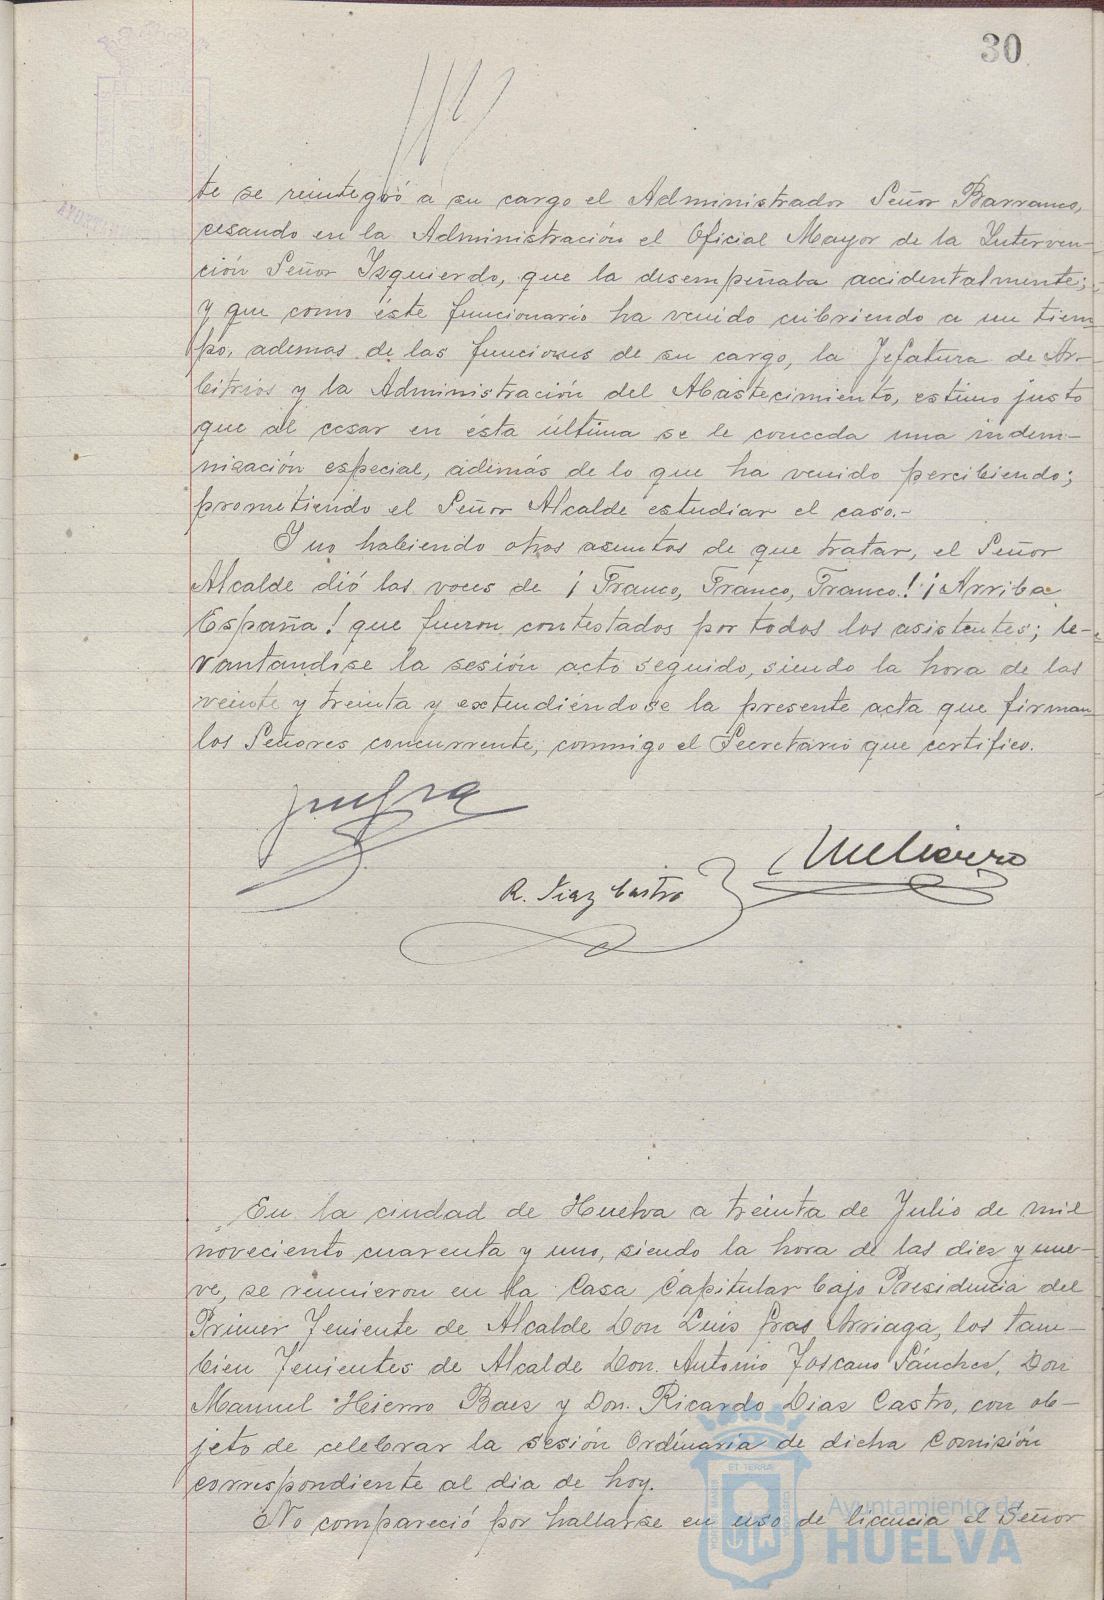 30
te se reintegró a su cargo el Administrador Señor Barranco,
cesando en la Administración el Oficial Mayor de la Interven-
ción Señor Izquierdo, que la desempeñaba accidentalmente;
y que como éste funcionario ha venido cubriendo a un tiem-
po, ademas de las funciones de su cargo, la Jefatura de Ar-
bitrios y la Administración del Abastecimiento, estimo justo
que al cesar en ésta última se le conceda una indem-
nización especial, además de lo que ha venido percibiendo;
prometiendo el Señor Alcalde estudiar el caso.-
Y no habiendo otros asuntos de que tratar, el Señor
Alcalde dió las voces de ¡Franco, Franco, Franco! ¡Arriba
España! que fueron contestados por todos los asistentes; le-
vantandose la sesión acto seguido, siendo la hora de las
veinte y treinta y extendiéndose la presente acta que firman
los Señores concurrente, conmigo el Secretario que certifico.
R. Diaz Castro
En la ciudad de Huelva a treinta de Julio de mil
noveciento cuarenta y uno, siendo la hora de las diez y nue-
ve, se reunieron en la Casa Capitular bajo Presidencia del
Primer Teniente de Alcalde Don Luis Gras Arriaga, los tam-
bien Tenientes de Alcalde Don. Antonio Toscano Sánchez, Don
Manuel Hierro Baez y Don. Ricardo Diaz Castro, con ob-
jeto de celebrar la sesión Ordinaria de dicha Comisión
correspondiente al dia de hoy.
No compareció por hallarse en uso de licencia el Señor
Ayuntamiento de
HUELVA